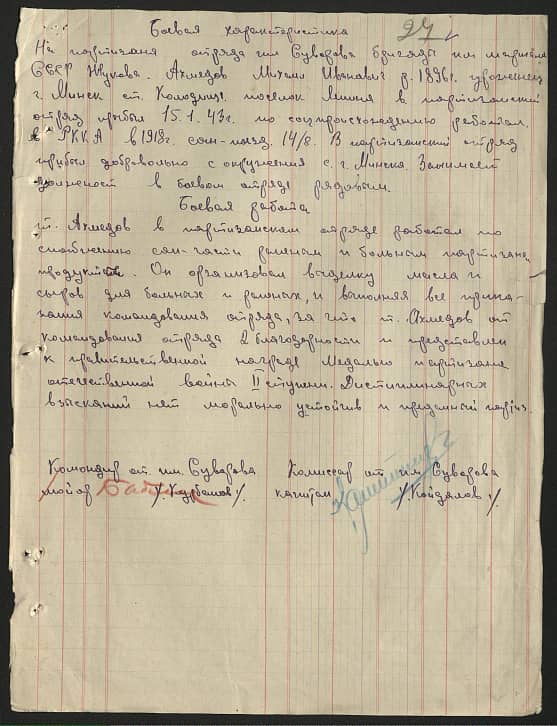 Боевая характеристика
27
На партизана отряда им Суворова бригады им маршала
СССР Жукова. Ахмедов Михаил Иванович р. 1896г. уроженец
г. Минск ст. Колодищ. поселок в партизанский
отряд прибыл 15.1.43г. по соцпроисхождению работал
в РККА в 1918г. 14/8. В партизанский отряд
прибыл добровольно с окружения с. г. Минска. Занимает
должност в боевом отряде рядовым.
Боевая работа
т. Ахмедов в партизанском отряде работал по
снабжению сан-части раненым и больным партизан
продуктов. Он организовал выделку масла и
сыров для больных и раненых, и выполняя все прика-
зания командования отряда, за что т. Ахмедов от
командования отряда 2 благодарности и представлен
к правительственной награде Медалью партизана
отечественной войны II ступени. Дистиплинарных
взысканий нет морально устойчив и преданный
Командир от. им. Суворова
Комиссар от им Суворова
майор /Курбанов/.
капитан /Койдалов/